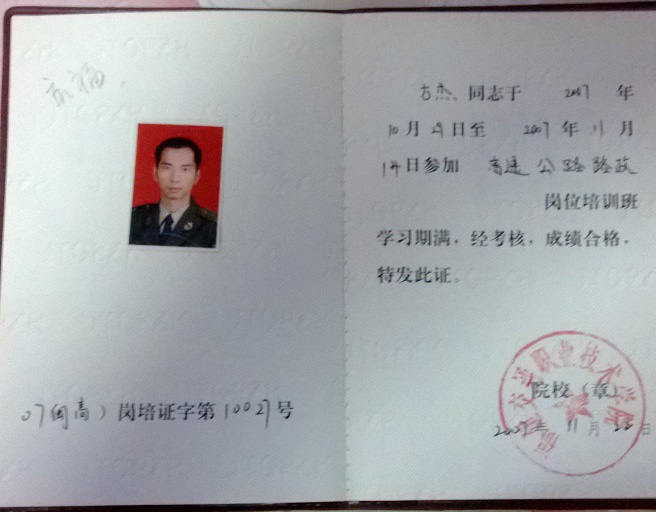 07(闽高)岗培证字第10027号
古杰 同志于 2007 年
10月29日至 2007年11月
14日参加 高速公路路政
岗位培训班
学习期满，经考核，成绩合格，
特发此证。
交通职业技术学院
院校（章）
2007年11月 日